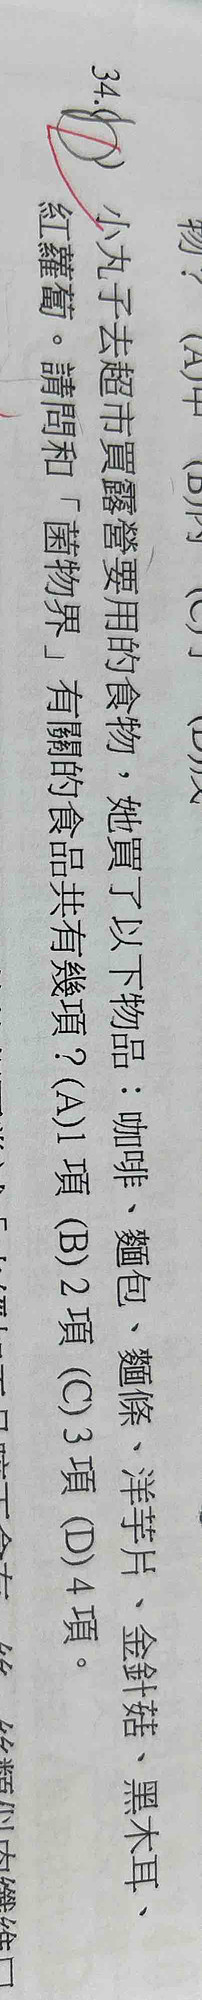 物？ (A)甲 (B)丙 (C)丁 (D)戊
34.(D) 小丸子去超市買露營要用的食物，她買了以下物品：咖啡、麵包、麵條、洋芋片、金針菇、黑木耳、
紅蘿蔔。請問和「菌物界」有關的食品共有幾項？(A)1 項 (B) 2 項 (C) 3 項 (D) 4 項。